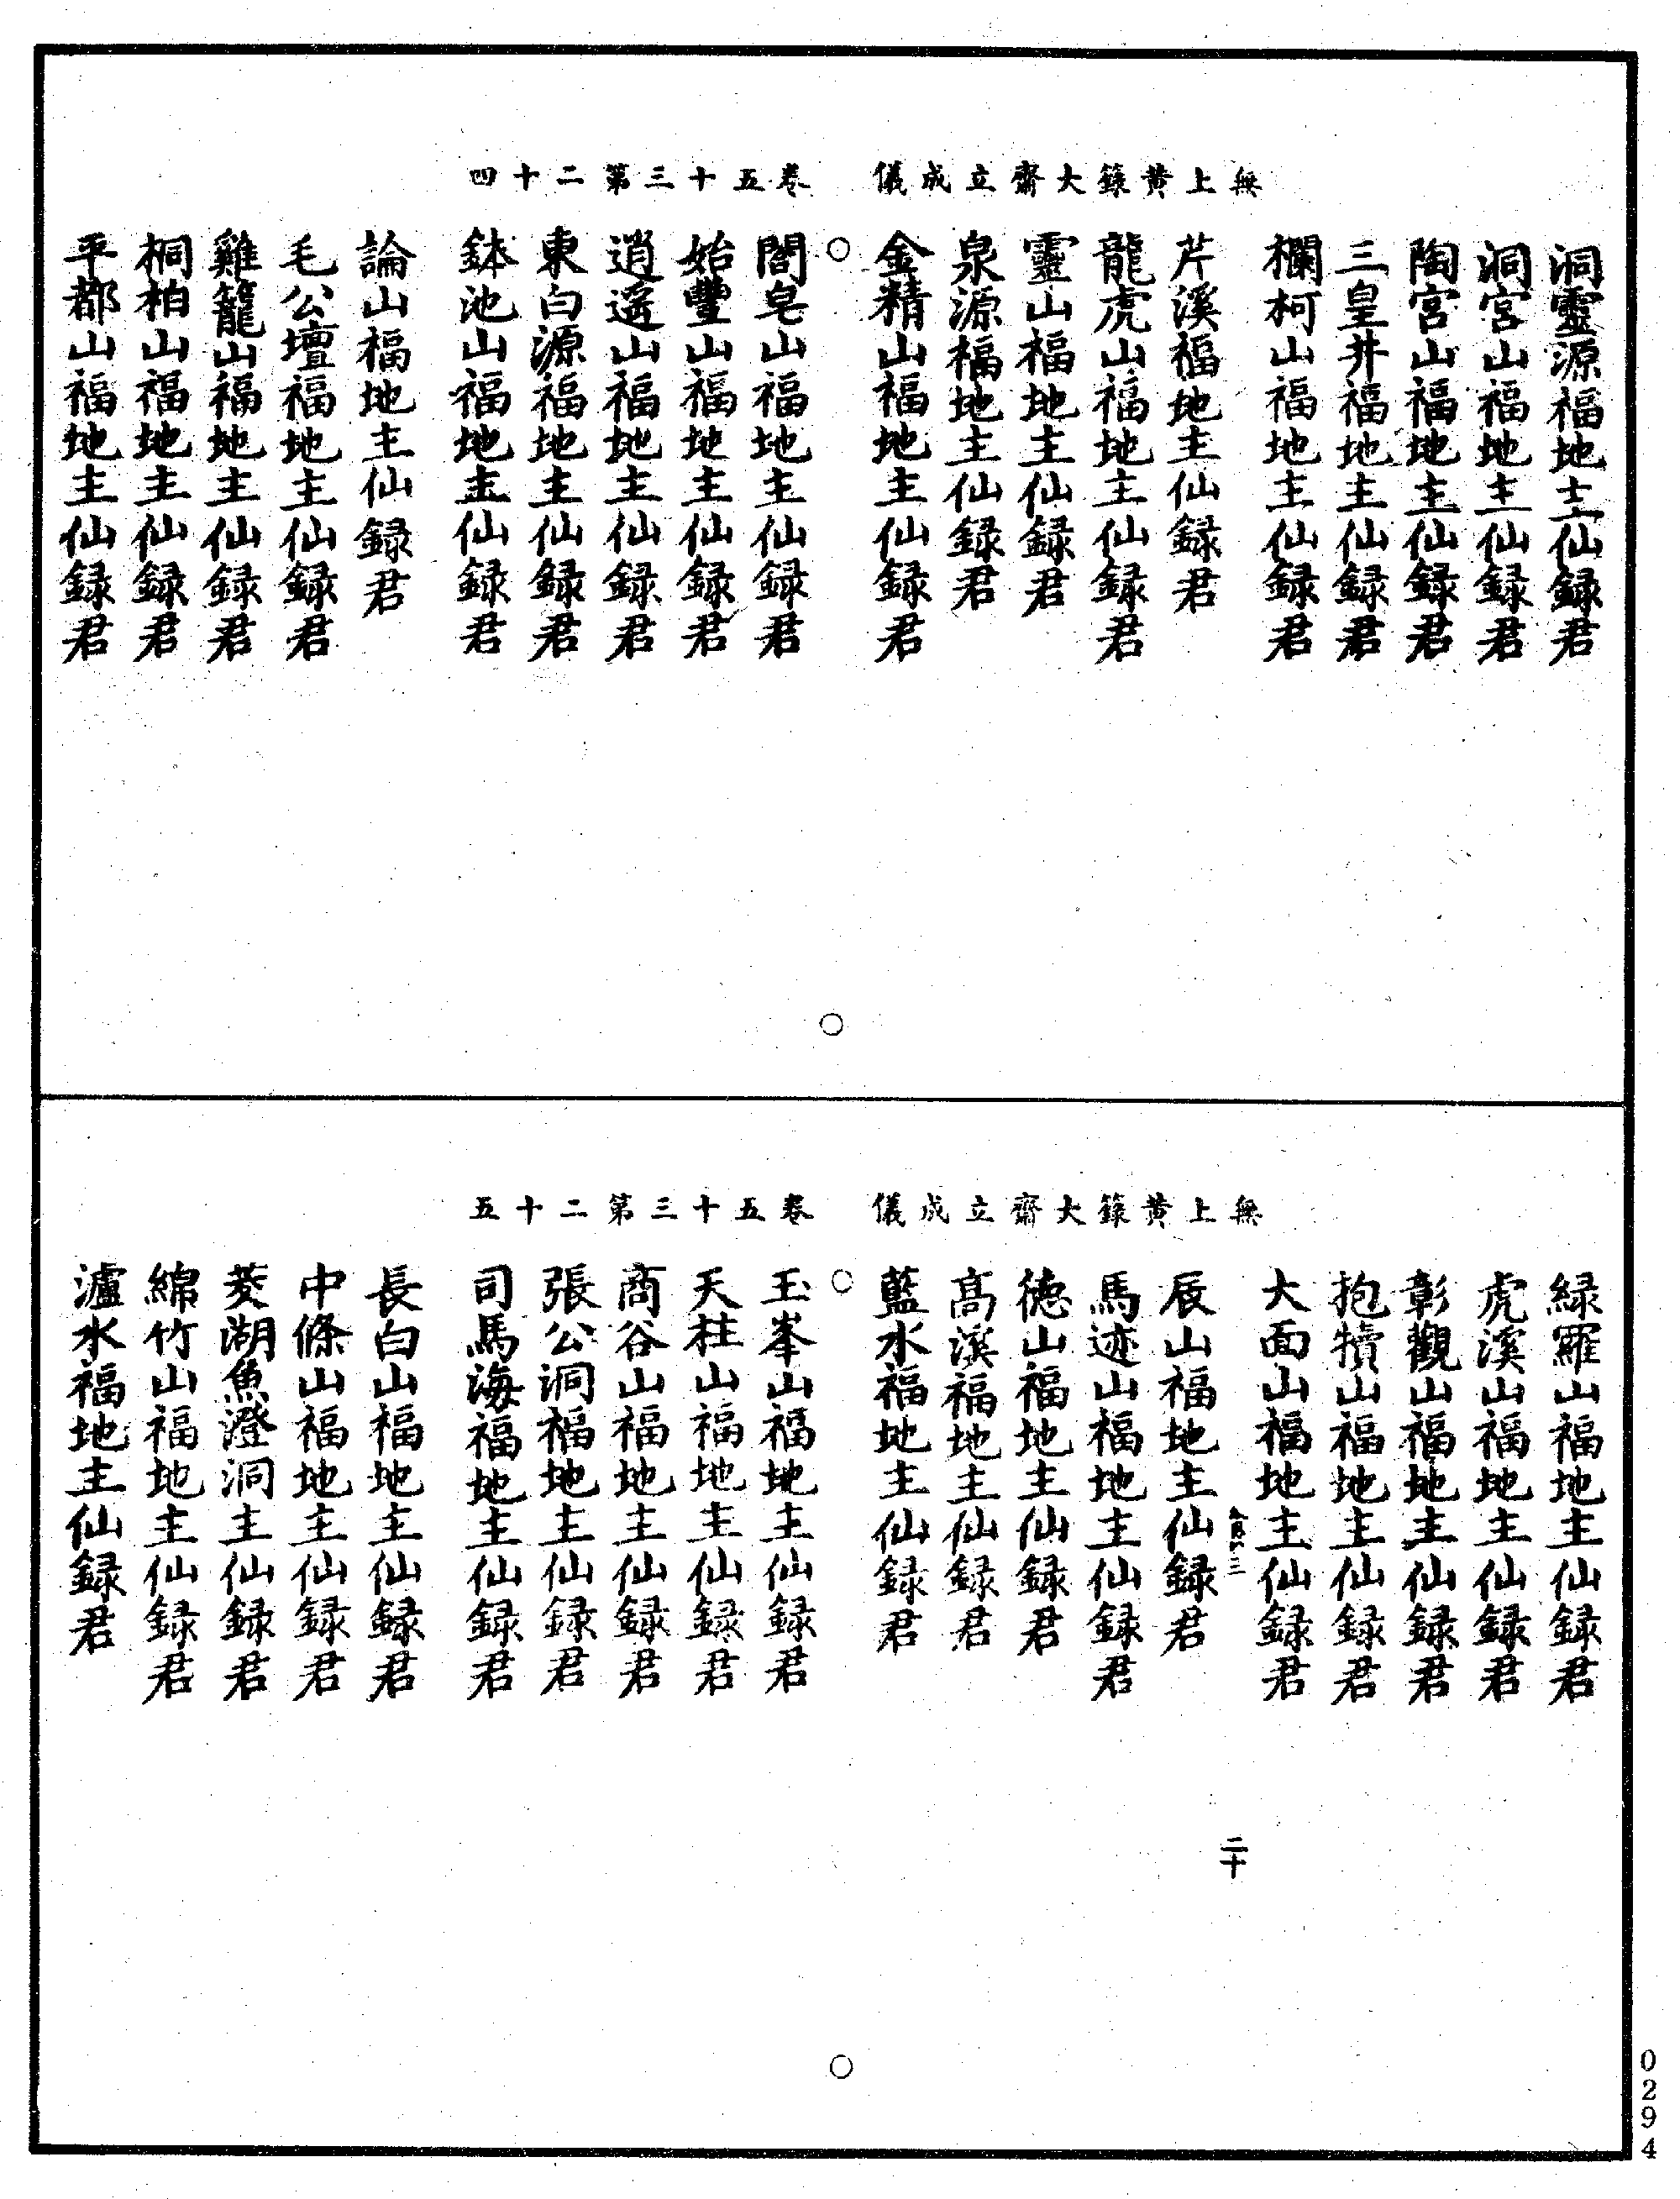 無上黃籙大齋立成儀 卷五十三第二十四
洞靈源福地主仙録君
洞宮山福地主仙録君
陶宮山福地主仙録君
三皇井福地主仙録君
欄柯山福地主仙録君
芹溪福地主仙録君
龍虎山福地主仙録君
靈山福地主仙録君
泉源福地主仙録君
金精山福地主仙録君
閤皂山福地主仙録君
始豐山福地主仙録君
逍遙山福地主仙録君
東白源福地主仙録君
鉢池山福地主仙録君
論山福地主仙録君
毛公壇福地主仙録君
雞籠山福地主仙録君
桐柏山福地主仙録君
平都山福地主仙録君
無上黃籙大齋立成儀 卷五十三第二十五
緑羅山福地主仙録君
虎溪山福地主仙録君
彰觀山福地主仙録君
抱犢山福地主仙録君
大面山福地主仙録君
二十
辰山福地主仙録君
馬迹山福地主仙録君
德山福地主仙録君
高溪福地主仙録君
藍水福地主仙録君
玉峯山福地主仙録君
天柱山福地主仙録君
商谷山福地主仙録君
張公洞福地主仙録君
司馬海福地主仙録君
長白山福地主仙録君
中條山福地主仙録君
茭湖魚澄洞主仙録君
綿竹山福地主仙録君
瀘水福地主仙録君
0294